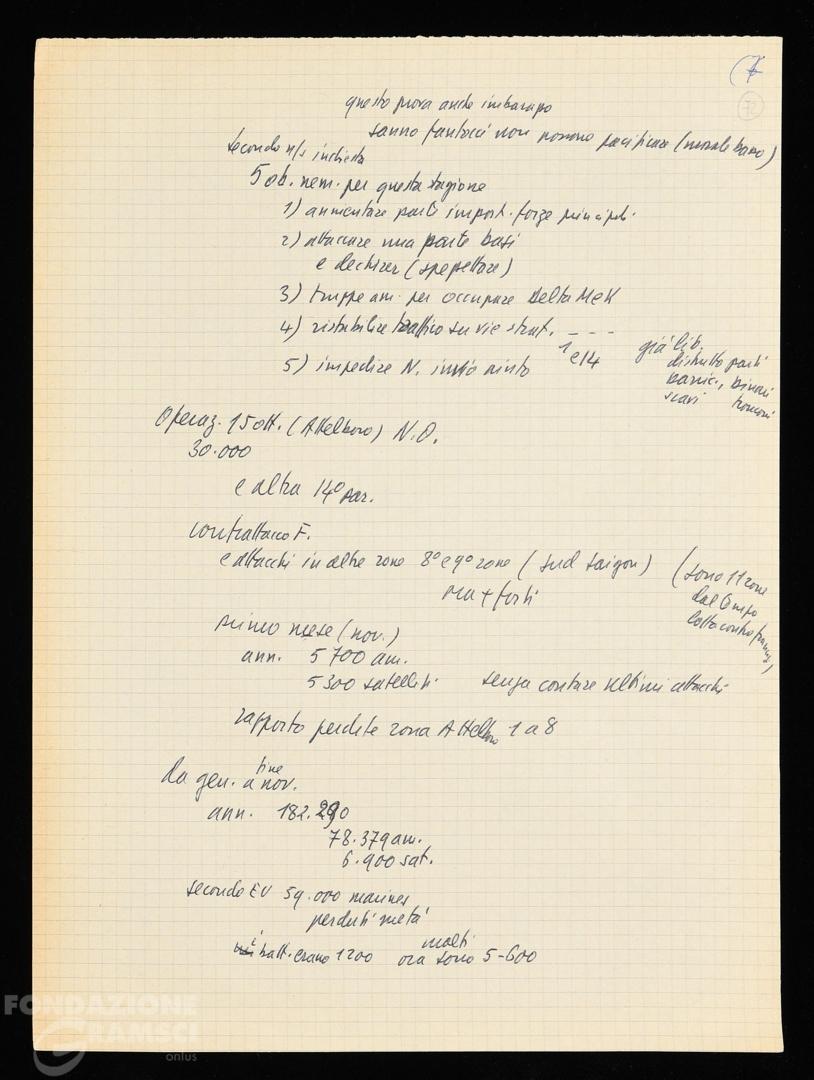 7
72
questo prova anche imbarazzo
sanno fantocci non possono pacificare (morale basso)
secondo n/s inchiesta
5 ob. nem. per questa stagione
1) aumentare parti import. forze princip.
2) attaccare una parte basi
e dechirer (spezzettare)
3) truppe am. per occupare Delta Mek
4) ristabilire traffico su vie strat. - - -
1 e 14
già lib.
distrutto parti
barric., binari
scavi tronconi
5) impedire N.
Operaz. 15 ott. (Attelboro) N.O.
30.000
e altra 14° par.
contrattacco F.
e attacchi in altre zone 8° e 9° zone (sud Saigon)
ma + forti
(sono 11 zone
dal tempo
lotta contro franc.)
primo mese (nov.)
ann. 5700 am.
5300 satelliti senza contare ultimi attacchi
rapporto perdite zona Attelboro 1 a 8
da gen. a fine nov.
ann. 182.290
78.379 am.
6.900 sat.
secondo EU 59.000 marines
perduti metà
i batt. erano 1200 molti ora sono 5-600
FONDAZIONE
GRAMSCI
onlus